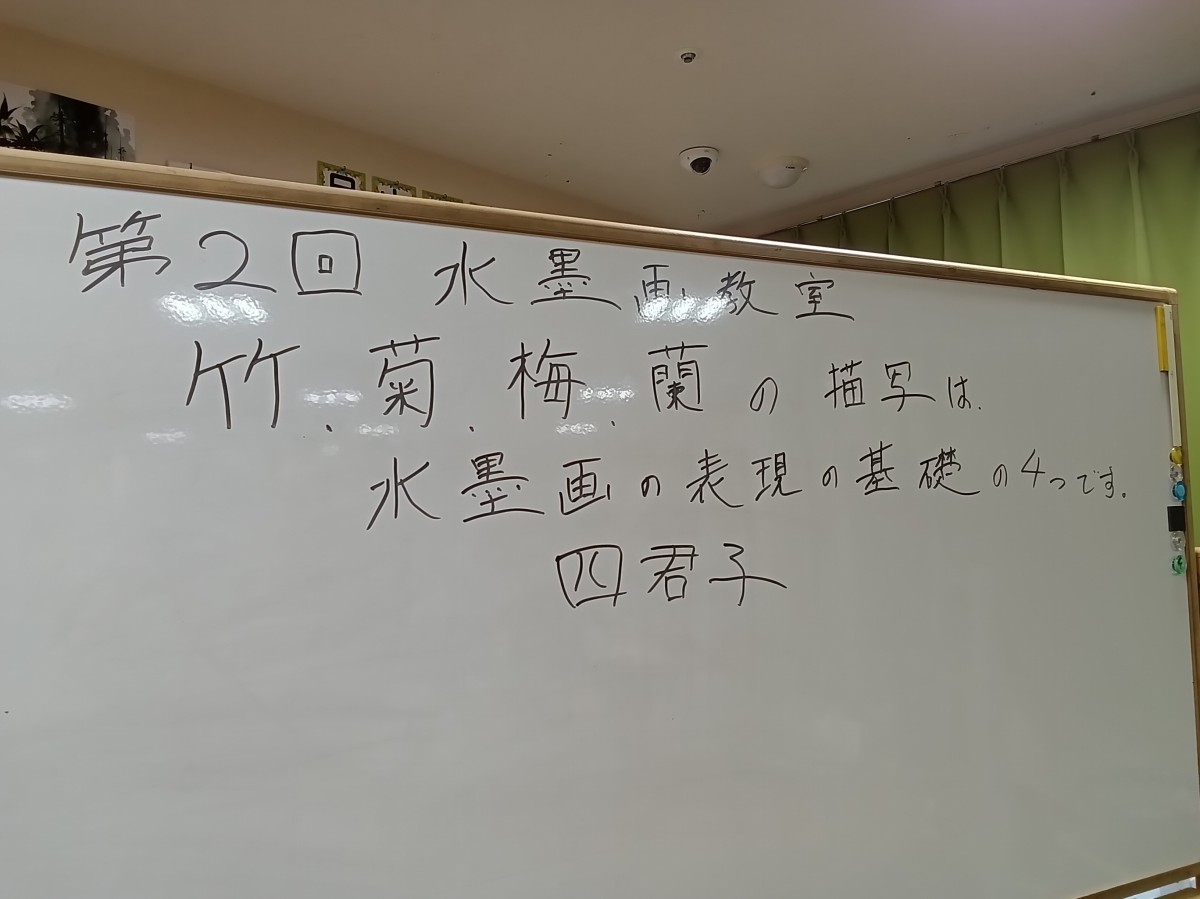 第2回 水墨画教室
竹、菊、梅、蘭の描写は、
水墨画の表現の基礎の4つです。
四君子